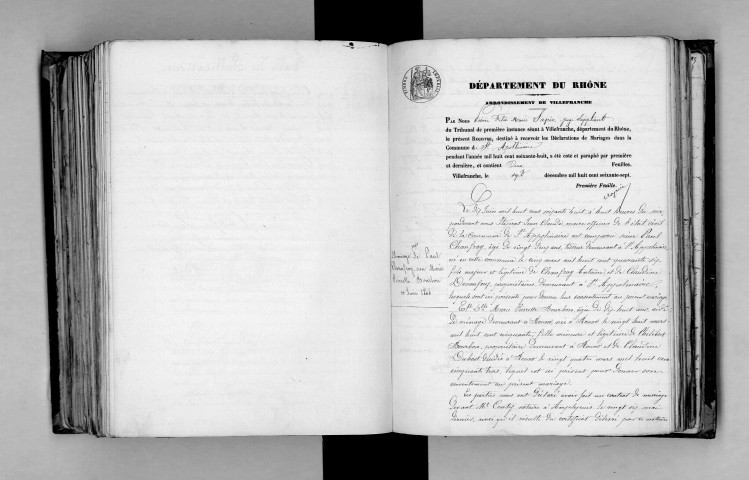 DÉPARTEMENT DU RHÔNE
ARRONDISSEMENT DE VILLEFRANCHE
PAR NOUS Pierre Marie juge suppléant
du Tribunal de première instance séant à Villefranche, département du Rhône,
le présent REGISTRE, destiné à recevoir les Déclarations de Mariages dans la
Commune de St Apollinaire
pendant l'année mil huit cent soixante-huit, a été coté et paraphé par première
et dernière, et contient Feuilles.
Villefranche, le décembre mil huit cent soixante-sept.
Première Feuille.
Mariage de Paul
Chanfray avec Marie
Pierrette Bourbon
Juin 1868
Le dix Juin mil huit cent soixante huit à huit heures du
pardevant nous Jean Claude maire officier de l'état civil
de la commune de St Appolinaire est comparu sieur Paul
Chanfray, âgé de vingt deux ans, demeurant à St Appolinaire
né en cette commune le cinq mars mil huit cent quarante six
fils majeur et légitime de Chanfray Antoine et de Claudine
propriétaires demeurant à St Appolinaire,
lesquels sont ici présents pour donner leur consentement au présent mariage
Et Dlle Marie Pierrette Bourbon âgée de dix huit ans
de ménage demeurant à née à le vingt huit mars
mil huit cent cinquante, fille mineure et légitime de Philibert
Bourbon, propriétaire demeurant à et de Claudine
Dubost décédée à le vingt quatre mars mil huit cent
cinquante trois, lequel est ici présent pour donner son
consentement au présent mariage.
Les parties nous ont déclaré avoir fait un contrat de mariage
devant Me notaire à le vingt six mai
dernier, ainsi qu'il résulte du certificat délivré par ce notaire